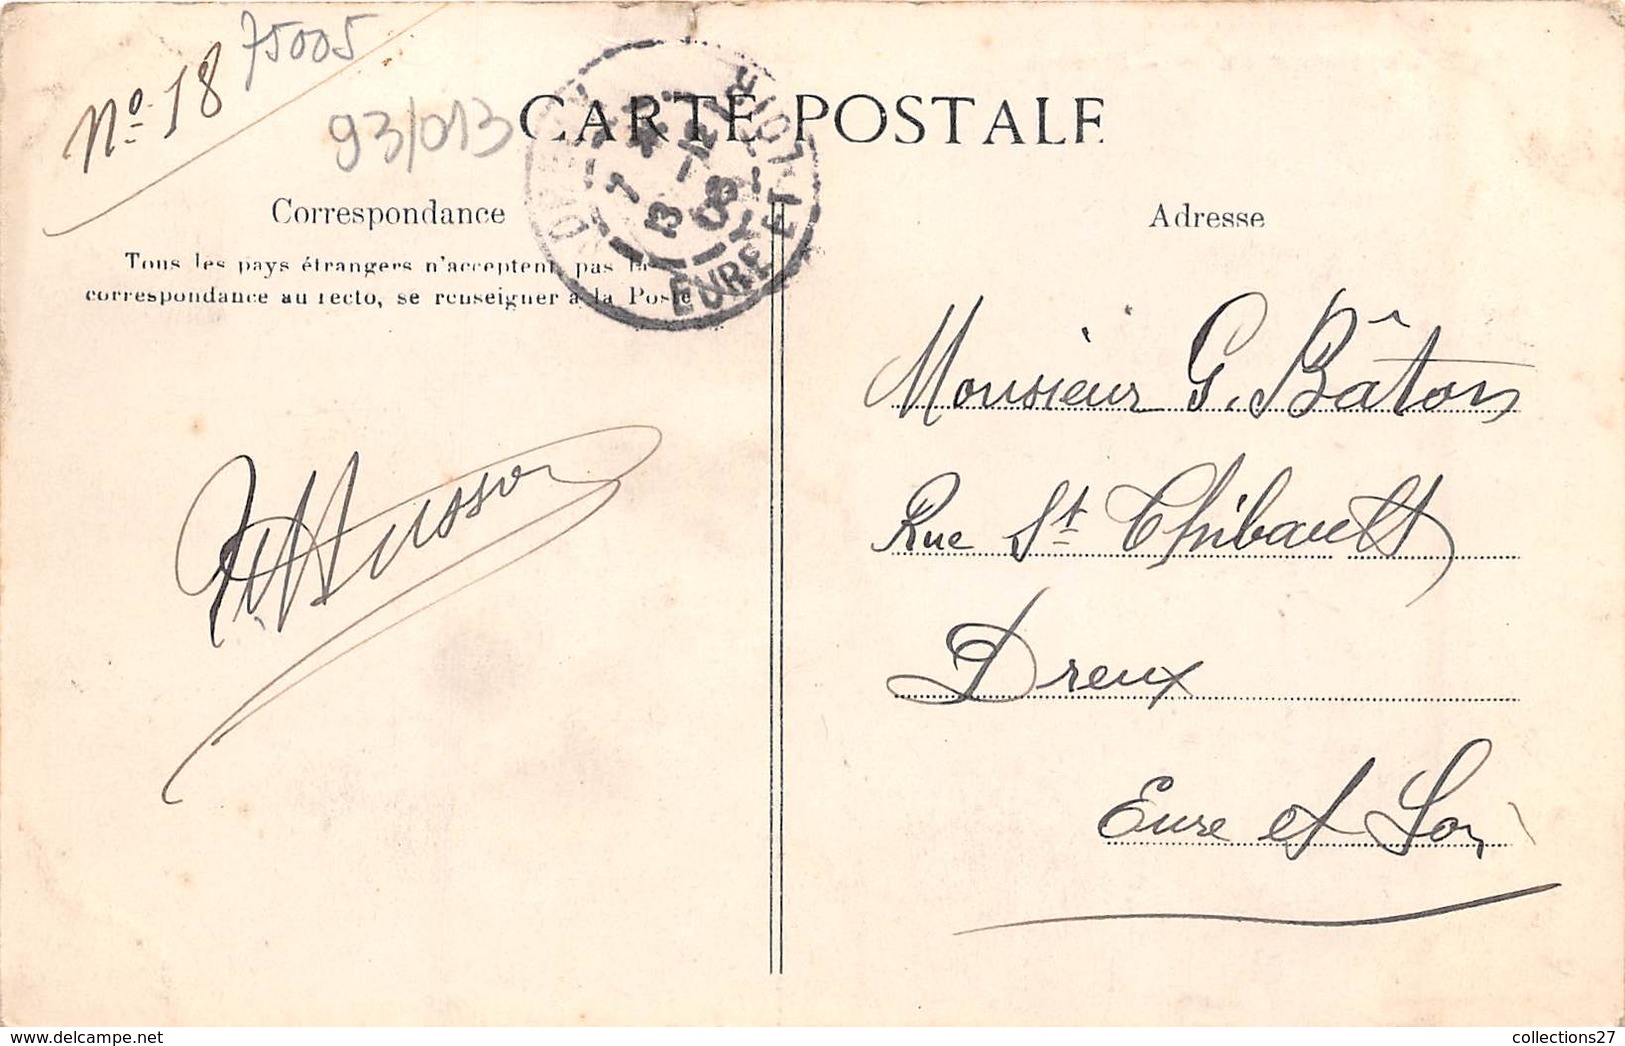 Nº 18
75005
93/013
CARTE POSTALE
EURE ET LOIR
13 -12
08
Correspondance
Tous les pays étrangers n'acceptent pas la
correspondance au recto, se renseigner à la Poste
Husson
Adresse
Monsieur G. Bâton
Rue St Thibault
Dreux
Eure et Loir
collections27